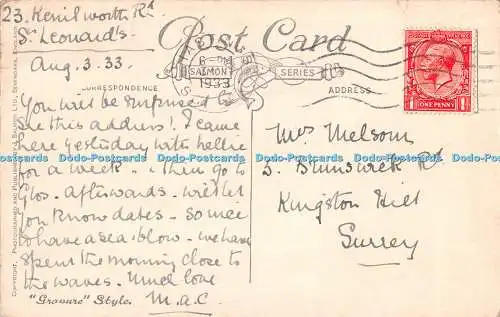 23. Kenilworth Rd
St Leonard's
Aug. 3. 33.
Post Card
HASTINGS
6- PM
1933
SALMON
SERIES
CORRESPONDENCE
ADDRESS
POSTAGE REVENUE
ONE PENNY
You will be surprised to
see this address! I came
here yesterday with Nellie
for a week. - then go to
Glos. afterwards. will let
you know dates - so nice
to have a sea blow - we have
spent the morning close to
the waves. Much love
M.A.C
Mrs Melsom
5. Brunswick Rd
Kingston Hill
Surrey
"Gravure" Style.
COPYRIGHT. PHOTOGRAPHED AND PUBLISHED BY J. SALMON, LTD., SEVENOAKS, ENGLAND
Dodo-Postcards Dodo-Postcards Dodo-Postcards Dodo-Postcards Dodo-Postcards Dodo-Postcards